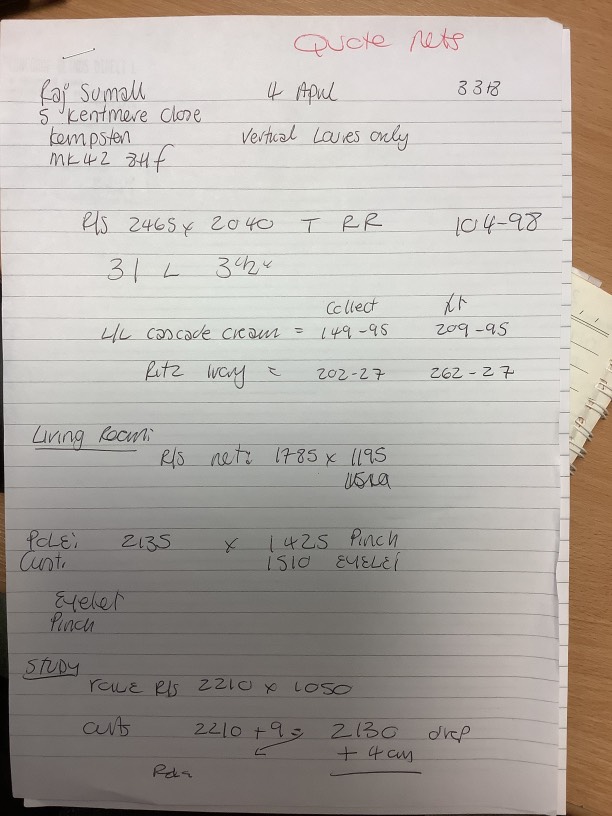 Quote nets
Raj Sumall 4 April 3318
5 Kentmere Close
Kempston Vertical Louvres only
MK42 8Hf
R/S 2465 x 2040 T RR 104-98
31 L 3
Collect
L/L cascade cream = 149-95 209-95
Ritz Ivory = 202-27 262-27
Living Room:
R/S net: 1785 x 1195
Pole: 2135 x 1425 Pinch
Curt. 1510 EYELET
Eyelet
Pinch
STUDY
R/S 2210 x 1050
2210 + 9 = 2130 drop
+ 4cm